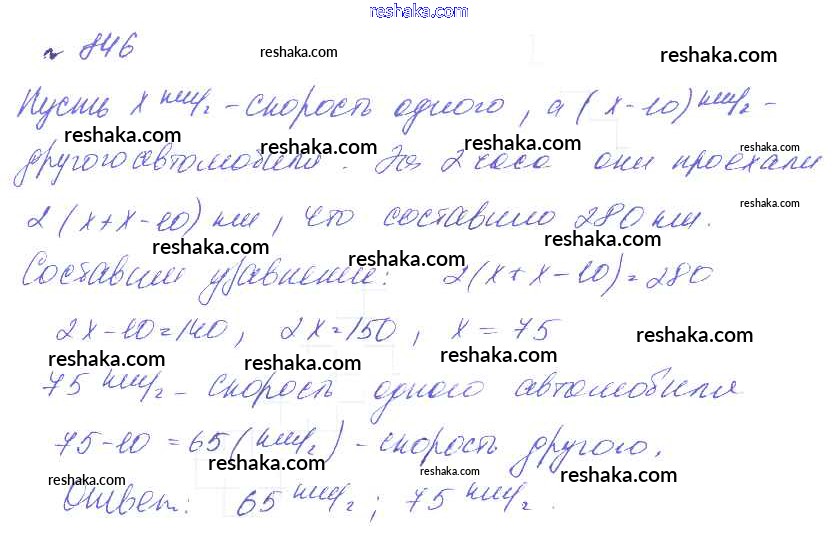 reshaka.com
№ 846
reshaka.com
reshaka.com
Пусть х км/ч - скорость одного, а (х-10) км/ч -
reshaka.com
reshaka.com
reshaka.com
другого автомобиля. За 2 часа они проехали
reshaka.com
reshaka.com
2(х+х-10) км, что составило 280 км.
reshaka.com
reshaka.com
Составим уравнение: 2(х+х-10)=280
2х-10=140, 2х=150, х=75
reshaka.com
reshaka.com
reshaka.com
reshaka.com
75 км/ч - скорость одного автомобиля
reshaka.com
75-10=65 (км/ч) - скорость другого.
reshaka.com
reshaka.com
reshaka.com
Ответ: 65 км/ч; 75 км/ч.
reshaka.com
reshaka.com